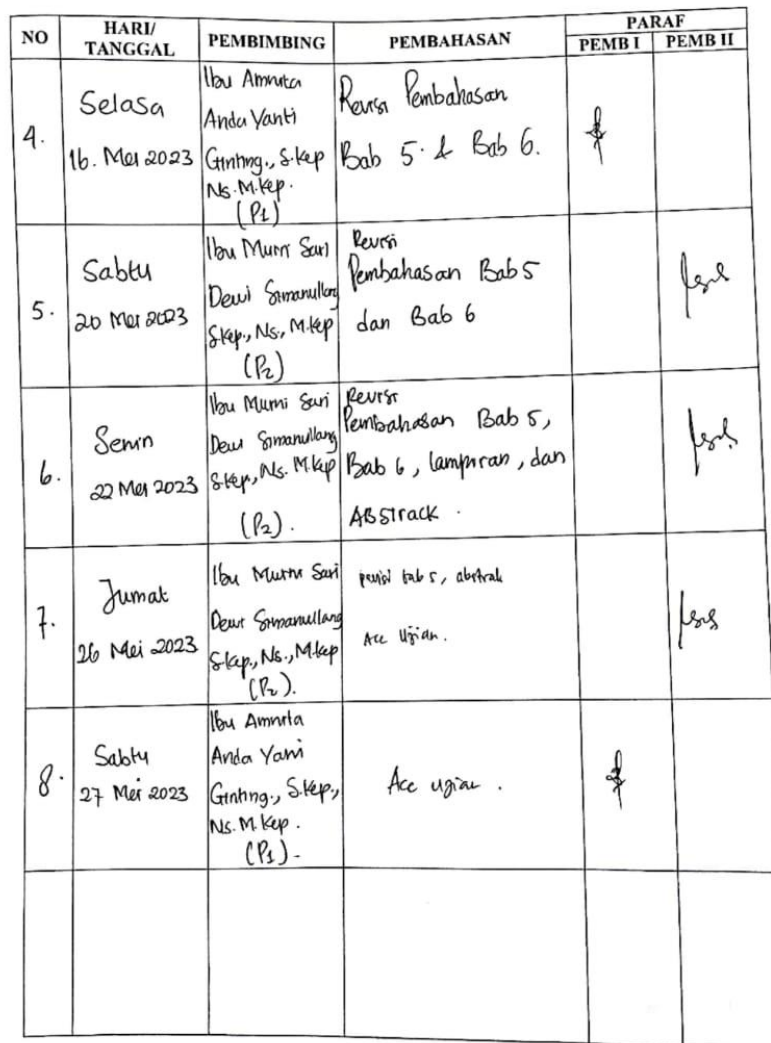 NO HARI/ TANGGAL PEMBIMBING PEMBAHASAN PARAF
PEMB I PEMB II
4. Selasa
16. Mei 2023
Ibu Amnita
Anda Yanti
Ginting., S.kep
Ns. M.kep.
(P1)
Revisi Pembahasan
Bab 5. & Bab 6.
5. Sabtu
20 Mei 2023
Ibu Murni Sari
Dewi Simanullang
S.kep., Ns., M.kep
(P2)
Revisi
Pembahasan Bab 5
dan Bab 6
6. Senin
22 Mei 2023
Ibu Murni Sari
Dewi Simanullang
S.kep., Ns. M.kep
(P2).
Revisi
Pembahasan Bab 5,
Bab 6, lampiran, dan
ABSTrack.
7. Jumat
26 Mei 2023
Ibu Murni Sari
Dewi Simanullang
S.kep., Ns., M.kep
(P2).
bab 5, abstrak
Acc Ujian.
8. Sabtu
27 Mei 2023
Ibu Amnita
Anda Yani
Ginting., S.kep.,
Ns. M.kep.
(P1).
Acc ujian.